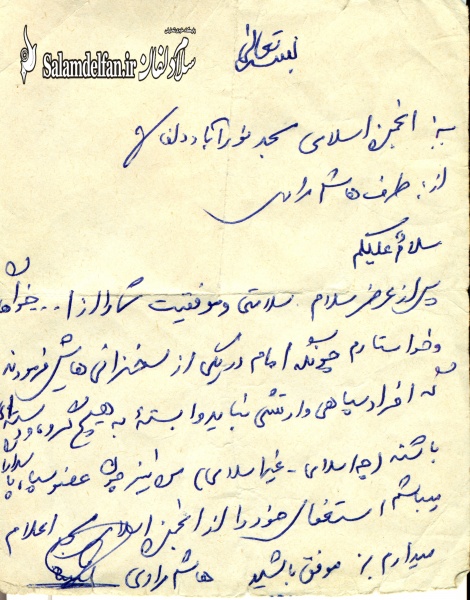 پایگاه خبری تحلیلی
سلام دلفان
Salamdelfan.ir
بسمه تعالی
به: انجمن اسلامی مسجد نورآباد دلفان
از: طرف هاشم مرادی
سلام علیکم
پس از عرض سلام سلامتی و موفقیت شما را از ا... خواهانم
و خواستارم چونکه امام در یکی از سخنرانی هایش فرمودند
که افراد سپاهی و ارتشی نباید وابسته به هیچ گروه و دسته ای
باشند (چه اسلامی - غیر اسلامی) من نیز چون عضو سپاه پاسداران
میباشم استعفای خود را از انجمن اسلامی مسجد اعلام
میدارم موفق باشید هاشم مرادی